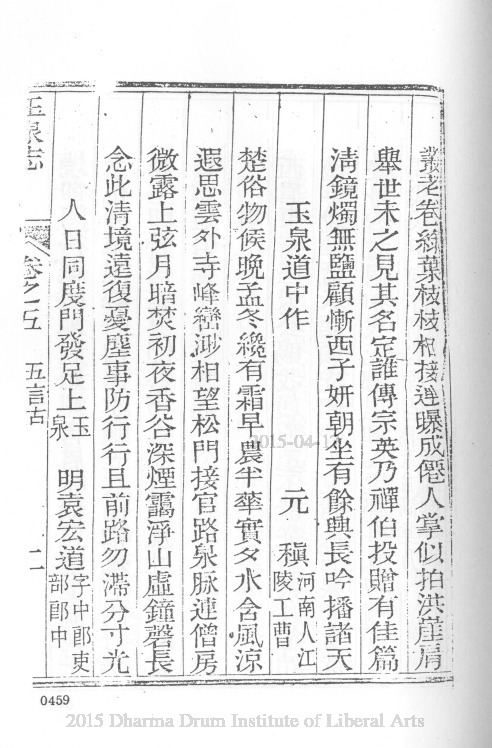 叢老卷綠葉枝枝相接連曝成僊人掌似拍洪崖肩
舉世未之見其名定誰傳宗英乃禪伯投贈有佳篇
清鏡燭無鹽顧慚西子妍朝坐有餘興長吟播諸天
玉泉道中作 元稹 河南人江陵工曹
楚俗物候晚孟冬纔有霜早農半華實夕水含風涼
遐思雲外寺峰巒渺相望松門接官路泉脉連僧房
微露上弦月暗焚初夜香谷深煙靄淨山虛鐘磬長
念此清境遠復憂塵事防行行且前路勿滯分寸光
人日同度門發足上玉泉 明袁宏道 字中郎吏部郎中
玉泉志 卷之五 五言古 二
2015-04-13
0459
2015 Dharma Drum Institute of Liberal Arts